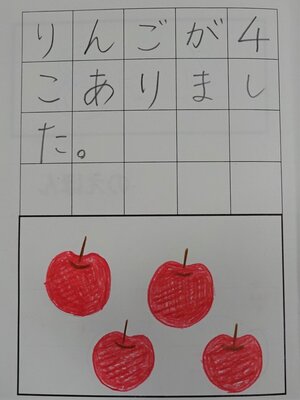 りんごが4
こありまし
た。